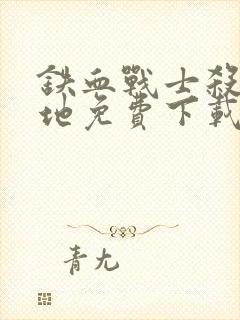 鉄血戰士殺
地免費下載
青尢